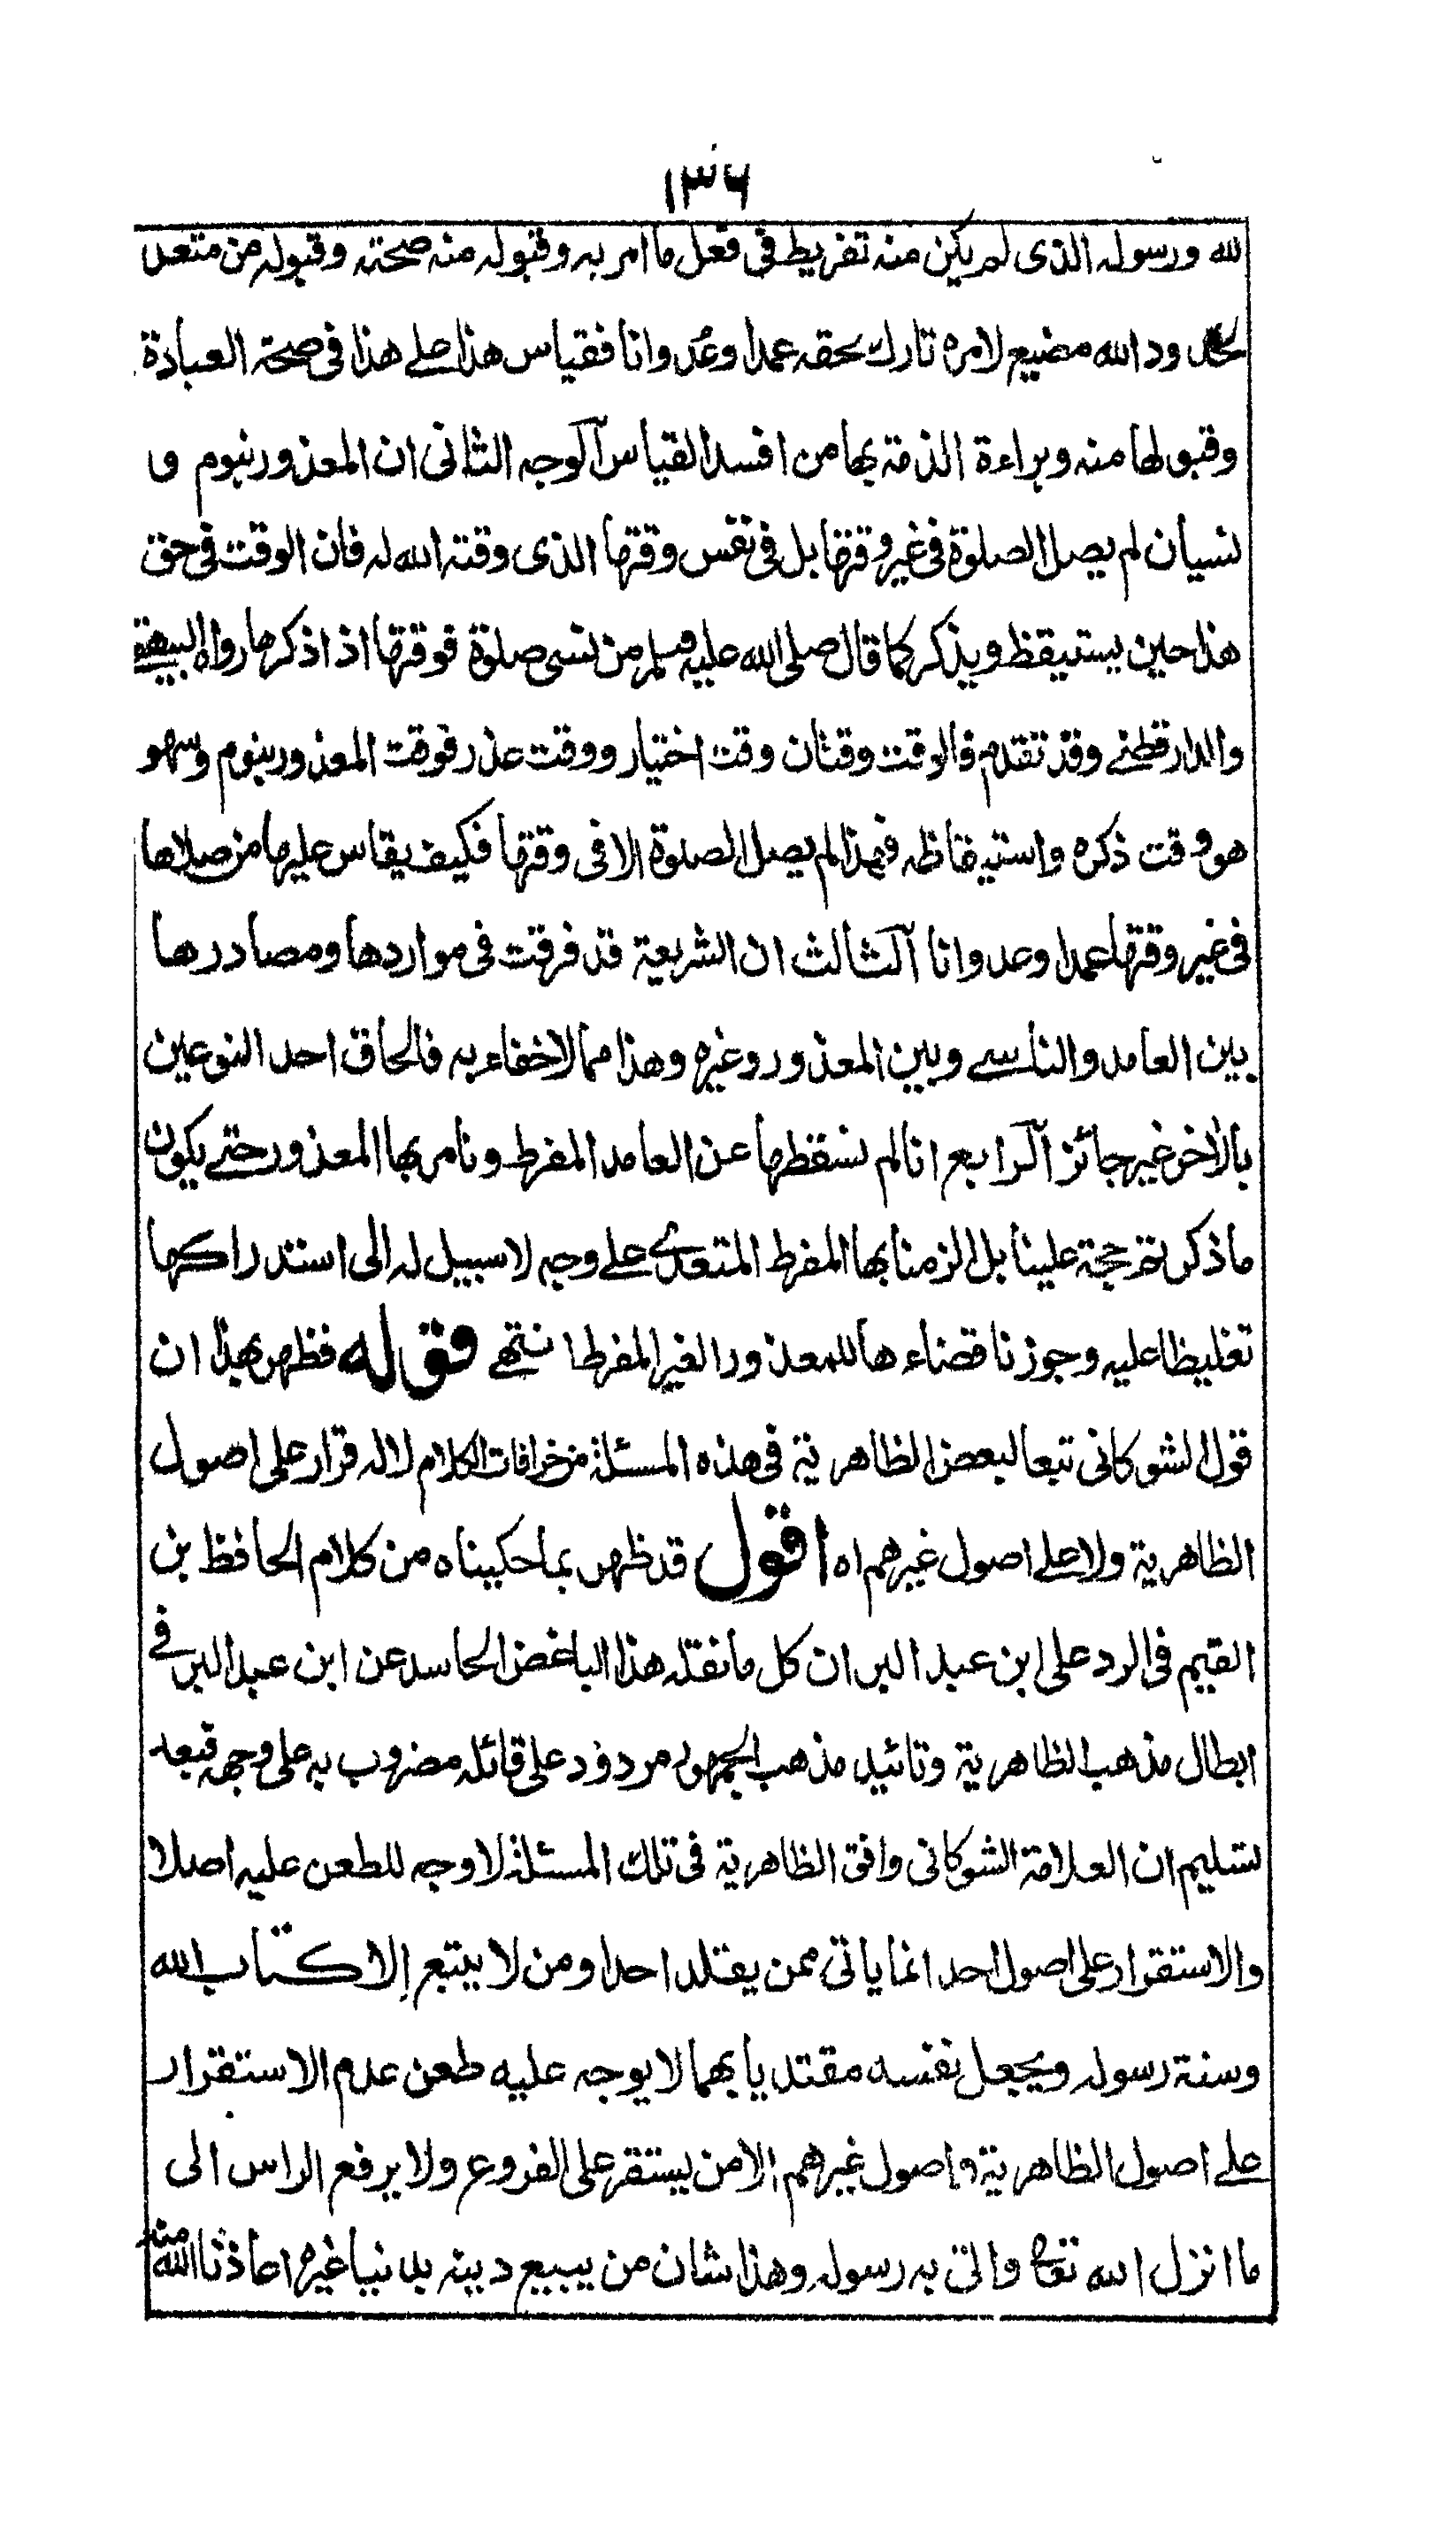 ١٣٦
لله ورسوله الذى لم يكن منه تفريط فى فعل ما امر به وقبوله منه صحته وقبوله من متعد
لحدود الله مضيع لامره تارك بحقه عمدا وعُدوانا فقياس هذا على هذا فى صحة العبادة
وقبولها منه وبراءة الذمة بها من افسد القياس آلوجه الثانى ان المعذور بنوم و
نسيان لم يصل الصلوة فى غير وقتها بل فى نفس وقتها الذى وقته الله له فان الوقت فى حق
هذا حين يستيقظ ويذكر كما قال صلى الله عليه وسلم من نسى صلوة فوقتها اذا ذكرها رواه البيهقے
والدارقطنے وقد تقدم فالوقت وقتان وقت اختيار ووقت عذر فوقت المعذور بنوم وسهو
هو وقت ذكره واستيقاظه فهذا لم يصل الصلوة الا فى وقتها فكيف يقاس عليها من صلاها
فى غير وقتها عمدا وعدوانا آلثالث ان الشريعة قد فرقت فى مواردها ومصادرها
بين العامد والناسے وبين المعذور وغيره وهذا مما لاخفاء به فالحاق احد النوعين
بالآخر غير جائز آلرابع انا لم نسقطها عن العامد المفرط ونامر بها المعذور حتے يكون
ما ذكرتم حجة علينا بل الزمنا بها المفرط المتعدے علے وجه لا سبيل له الى استدراكها
تغليظا عليه وجوزنا قضاءها للمعذور الغير المفرط انتهے قوله فظهر بهذا ان
قول الشوكانى تبعا لبعض الظاهرية فى هذه المسئلة من خرافات الكلام لا له قرار على اصول
الظاهرية ولا علے اصول غيرهم اه اقول قد ظهر بما حكيناه من كلام الحافظ بن
القيم فى الرد على ابن عبد البر ان كل ما نقله هذا الباغض الحاسد عن ابن عبد البر فے
ابطال مذهب الظاهرية وتائيد مذهب الجمهور مردود على قائله مضروب به على وجهه فبعد
تسليم ان العلامة الشوكانى وافق الظاهرية فى تلك المسئلة لا وجه للطعن عليه اصلا
والاستقرار على اصول احد انما ياتى ممن يقلد احدا ومن لا يتبع إلا كتاب الله
وسنة رسوله ويجعل نفسه مقتديا بهما لا يوجه عليه طعن عدم الاستقرار
علے اصول الظاهرية واصول غيرهم الا من يستقر على الفروع ولا يرفع الراس الى
ما انزل الله تعا واتى به رسوله وهذا شان من يبيع دينه بدنيا غيره اعاذنا الله منه